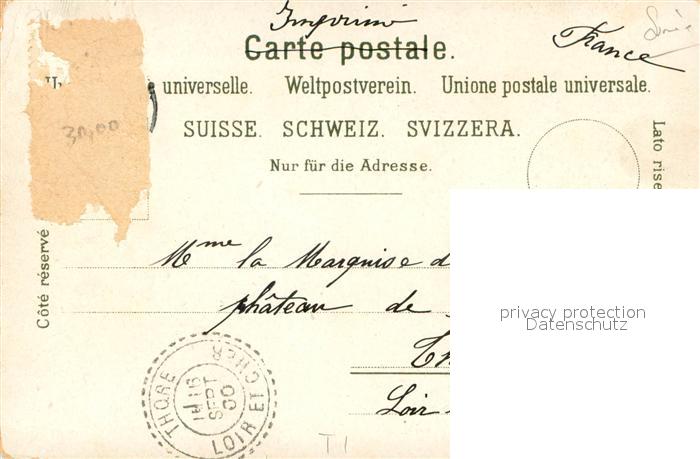 Imprimé
France
Carte postale.
universelle. Weltpostverein. Unione postale universale.
30,00
SUISSE. SCHWEIZ. SVIZZERA.
Nur für die Adresse.
Côté réservé
Lato rise
Mme la Marquise d
château de
privacy protection
Datenschutz
Th
Loir
THORE
16
SEPT
00
LOIR ET CHER
T1